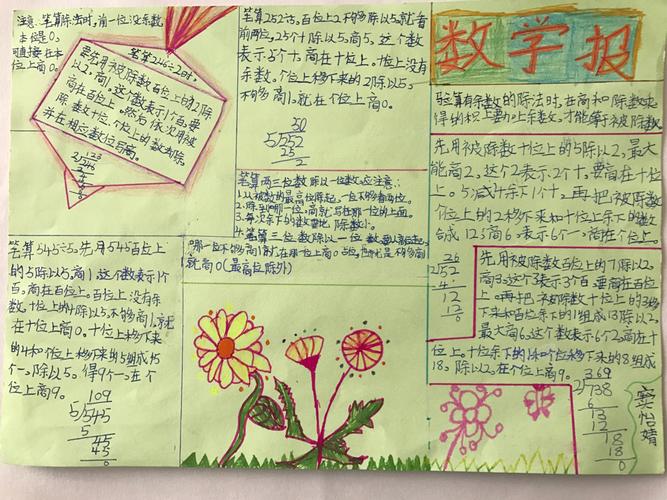 注意：笔算除法时，前一位没余数，
本位是0，
可直接在本
位上商0。
笔算246÷2时，
要先用被除数百位上的2除
以2，商1。这个数表示1个百，要
商在百位上。然后依次用被
除数十位、个位上的数去除。
并在相应数位写商。
123
2√246
笔算252÷5，百位上2不够除以5，就看
前两位，25个十除以5，商5，这个数
表示5个十，商在十位上。十位上没有
余数。个位上移下来的2除以5，
不够商1，就在个位上商0。
50
5√252
25
2
数学报
验算有余数的除法时，在商和除数乘
得的积上要加上余数，才能等于被除数
先用被除数十位上的5除以2，最大
能商2，这个2表示2个十，要商在十位
上。5减4余下1个十，再把被除数
个位上的2移下来和十位上余下的数
合成12，商6，表示6个一，商在个位上。
26
2√52
4
12
12
0
笔算两三位数除以一位数，应注意：
1.从被数的最高位除起，一位不够看两位。
2.除到哪一位，商就写在那一位的上面。
3.每次余下的数要比除数小。
4.笔算三位数除以一位数
就商0（最高位除外）
笔算545÷5，先用545百位上
的5除以5，商1，这个数表示1个
百，商在百位上。百位上没有余
数，十位上的4除以5，不够商1，就
在十位上商0。十位上移下来
的4和个位上移下来的5组成45
个一，除以5。得9个一，在个
位上商9。
109
5√545
5
45
45
0
先用被除数百位上的7除以2，
商3，这个3表示3个百，要商在百位
上。再把被除数十位上的3移
下来和百位余下的1组成13除以2，
最大商6，这个数表示6个十，商在十
位上，十位余下的1和个位移下来的8组成
18。除以2，在个位上商9。
369
2√738
6
13
12
18
18
0
怡婧